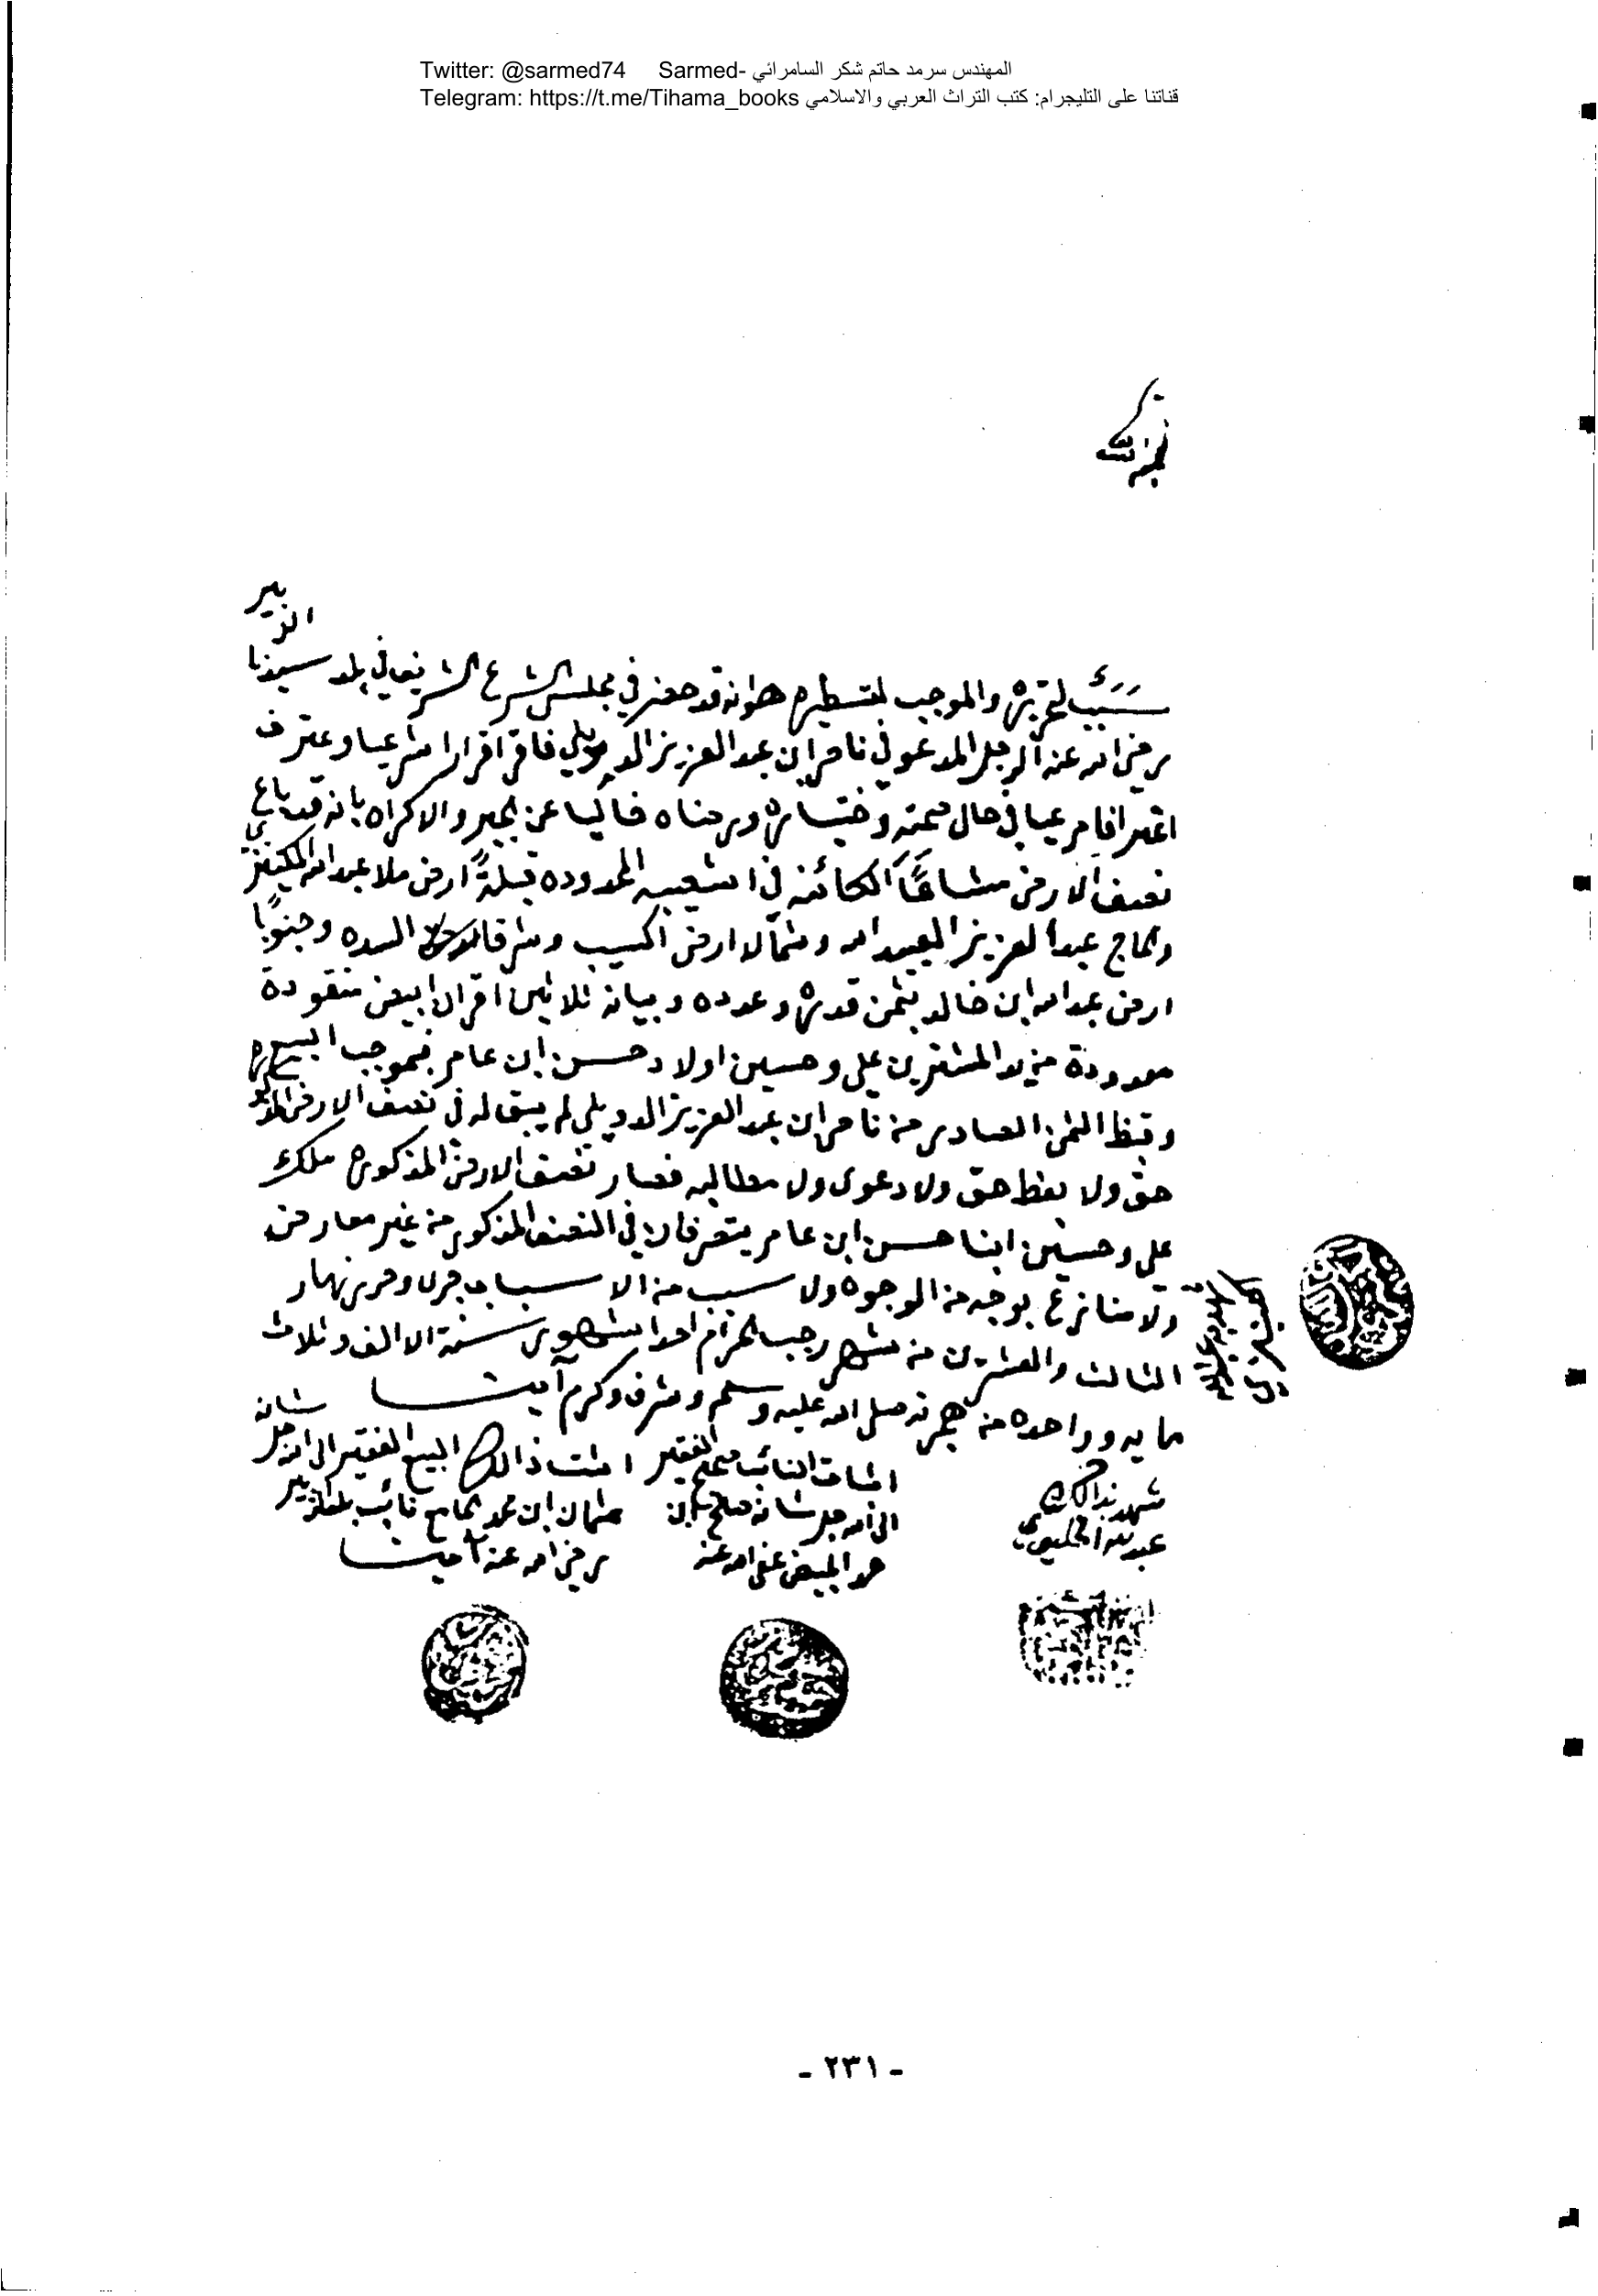 Twitter: @sarmed74 Sarmed- المهندس سرمد حاتم شكر السامرائي
Telegram: https://t.me/Tihama_books قناتنا على التليجرام: كتب التراث العربي والاسلامي
سبب تحريره والموجب لتسطيره هو انه قد حضر في مجلس الشرع الشريف في بلد سيدنا الزبير
رضي الله عنه الرجل المدعو في ناصر ابن عبد العزيز الدويلي فاقر اقرارا شرعيا وعترف
اعترافا مرعيا في حال صحته وختياره ورضاه خاليا عن الجبر والاكراه بانه قد باع
نصف الارض مشاعًا الكائنه في الشعيبه المحدوده قبلةً ارض ملا عبد الله
والحاج عبد العزيز العبد الله وشمالا ارض وشرقا السده وجنوبًا
ارض عبد الله ابن خالد بثمن قدره وعدده وبيانه ثلاثين اقران ابيض منقودة
معدودة من يد المشترين علي وحسين اولاد حسن ابن عامر فبموجب البيع
وقبظ الثمن الصادر من ناصر ابن عبد العزيز الدويلي لم يبق له في نصف الارض
حق ولا بعظ حق ولا دعوى ولا مطالبه فصار نصف الارض المذكوره ملك
علي وحسين ابنا حسن ابن عامر يتصرفان في النصف المذكور من غير معارض
ولا منازع بوجه من الوجوه ولا سبب من الاسباب جرى وحرر نهار
الثالث والعشرين من شهر رجب الحرام احدا شهور سنة الالف وثلاث
مايه وواحده من هجرته صلى الله عليه وسلم وشرف وكرم آمين
شهد بذالك
عبد الله
النائب الفقير
الى الله جل شانه صالح ابن
حمد المبيض عفى الله عنه
اثبت ذالك البيع الفقير الى الله جل شانه
عثمان ابن محمد الحاج نائب بلد الزبير
رضي الله عنه آمين
- ٢٣١ -